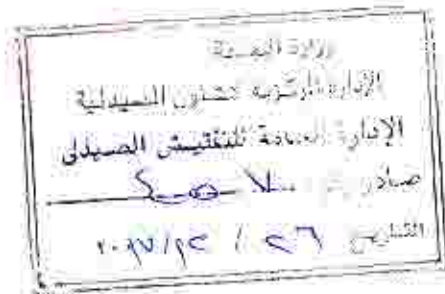 وزارة الصحة
الإدارة المركزية للشئون الصيدلية
الإدارة العامة للتفتيش الصيدلى
صادر
التاريخ ٢٦ / ١٢ / ٢٠١٧